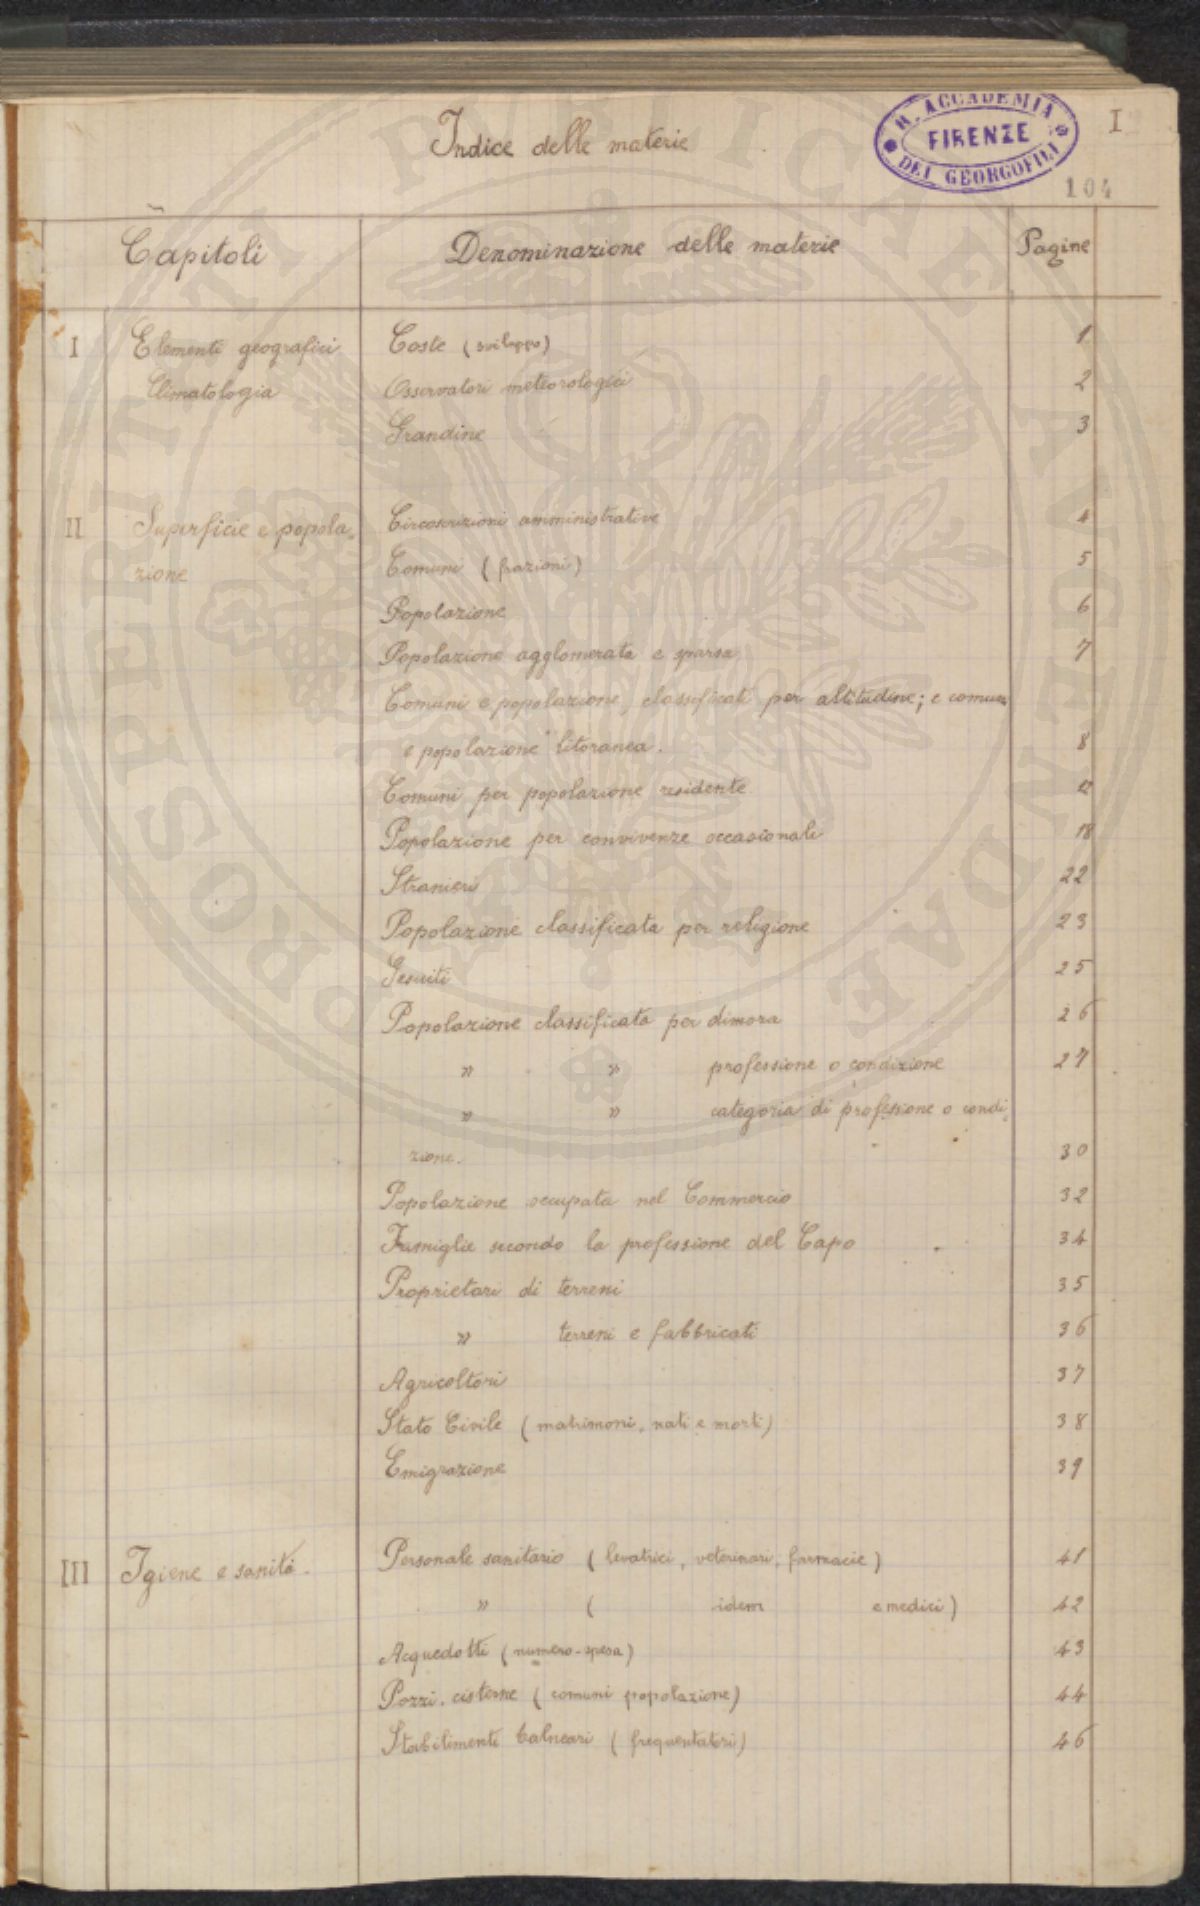 Indice delle materie
R. ACCADEMIA
FIRENZE
DEI GEORGOFILI
I
104
Capitoli Denominazione delle materie Pagine
I Elementi geografici Coste (sviluppo) 1
Climatologia Osservatori meteorologici 2
Grandine 3
II Superficie e popola- Circoscrizioni amministrative 4
zione Comuni (frazioni) 5
Popolazione 6
Popolazione agglomerata e sparsa 7
Comuni e popolazione, classificati per altitudine; e comuni
e popolazione litoranea. 8
Comuni per popolazione residente 12
Popolazione per convivenze occasionali 18
Stranieri 22
Popolazione classificata per religione 23
Gesuiti 25
Popolazione classificata per dimora 26
" " professione o condizione 27
" " categoria di professione o condi-
zione. 30
Popolazione occupata nel Commercio 32
Famiglie secondo la professione del Capo 34
Proprietari di terreni 35
" terreni e fabbricati 36
Agricoltori 37
Stato Civile (matrimoni, nati e morti) 38
Emigrazione 39
III Igiene e sanità. Personale sanitario (levatrici, veterinari, farmacie) 41
" ( idem e medici) 42
Acquedotti (numero-spesa) 43
Pozzi. cisterne (comuni popolazione) 44
Stabilimenti balneari (frequentatori) 46
PROSPERITATI PUBLICAE AUGENDAE